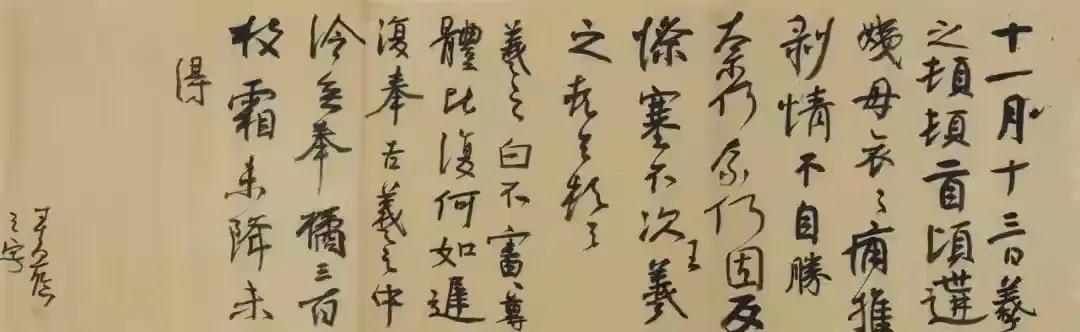 十一月十三日羲
之頓頓首頃遘
姨母哀〻痛摧
剥情不自勝
奈何奈何因反
慘塞不次王羲
之頓首頓首
羲之白不審尊
體比復何如遲
復奉告羲之中
冷無奉橘三百
枚霜未降未
得